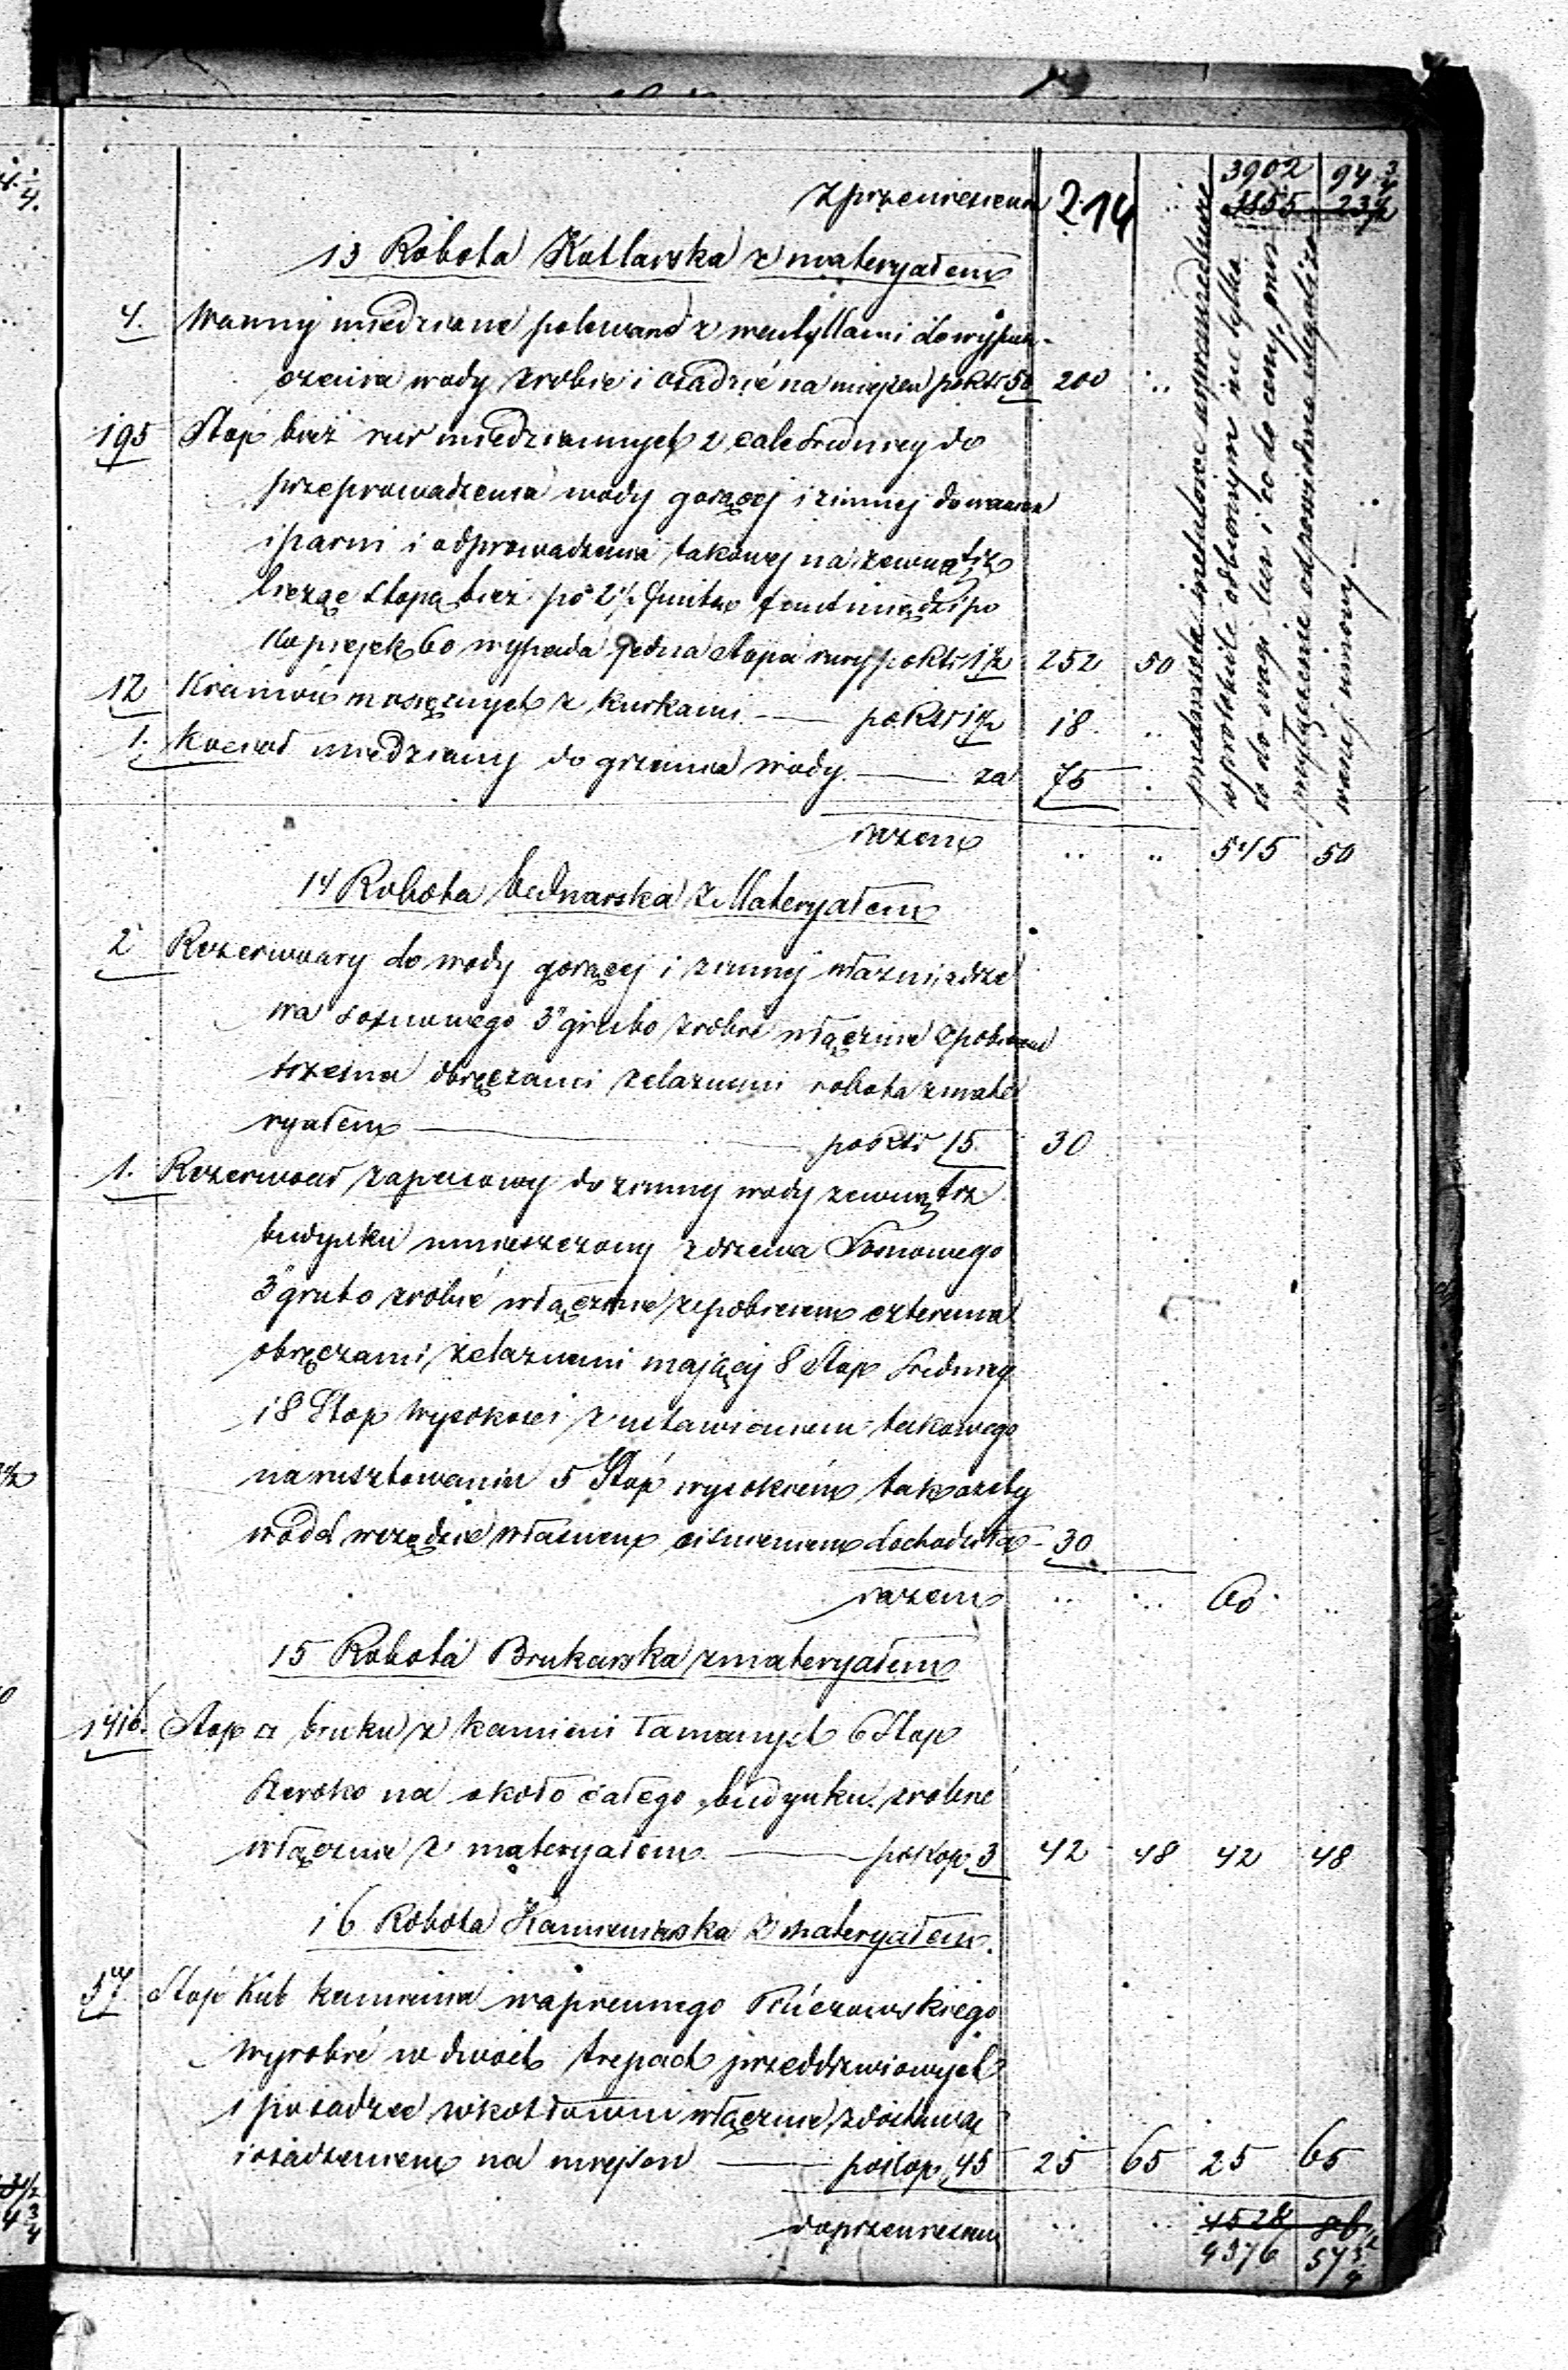 z przeniesienia 214 .. 3902 94 3/4
3855 23 1/2
13 Robota Kotlarska z materyałem
4. Wanny miedziane polewane z wentyllami do wypusz-
czenia wody zrobić i osadzić na miejscu po RSr 50 200 ..
195 Stop bież rur miedzianych 2 cale średnicy do
przeprowadzenia wody gorącej i zimnej do wanien
i parni i odprowadzenia takowej na zewnątrz
licząc stopą bież po 2 1/2 funta funt miedzi po
kopiejek 60 wypada jedna stopa rury po RSr 1 1/2 252 50
12 Kranów mosiężnych z kurkami — po RSr 1 1/2 18 ..
1. Kocioł miedziany do grzania wody — za 75 .
razem .. .. 545 50
14 Robota bednarska z Materyałem
2 Rezerwoary do wody gorącej i zimnej w łaźni z drze
wa sosnowego 3" grubo zrobić włącznie z pobiciem
trzema obręczami żelaznemi robota z mate
ryałem — po RSr 15 30
1. Rezerwoar zapasowy do zimnej wody zewnątrz
budynku umieszczony z drzewa Sosnowego
3" grubo zrobić włącznie z pobiciem czterema
obręczami żelaznemi mającej 8 Stop średnicy
i 8 Stop wysokości z ustawieniem takowego
na rusztowaniu 5 Stóp wysokiem tak ażeby
woda wszędzie własnem ciśnieniem dochodziła - 30
razem .. .. 60 ..
15 Robota Brukarska z materyałem
1416. Stop □ bruku z kamieni łamanych 6 Stop
szeroko na około całego budynku zrobić
włącznie z materyałem — po kop 3 42 48 42 48
16 Robota Kamieniarska z materyałem.
57 Stóp Kub kamienia wapiennego Pińczowskiego
wyrobić w dwóch trepach przeddrzwiowych
i posadzce w kotłowni włącznie z dostawą
i osadzeniem na miejscu — po kop 45 25 65 25 65
do przeniesienia .. .. 4528 86 1/2
4376 57 3/4
przedmiota metalowe sprawdzone
w protokule odbiorczym nie tylko
co do wagi lecz i co do ceny, przez
przyłączenie odpowiednio
waney umowy —